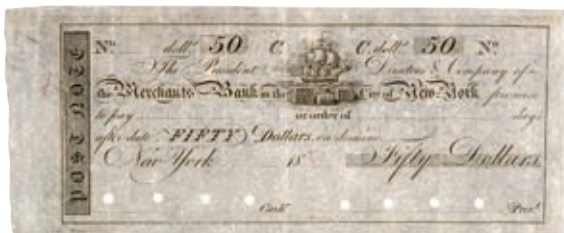 POST NOTE
No. dolls. 50 C. C. dolls. 50 No.
The President Directors & Company of
the Merchants Bank in the City of New York promise
to pay or order of days
after date FIFTY Dollars
New York 18 Fifty Dollars
Cashr. Prest.